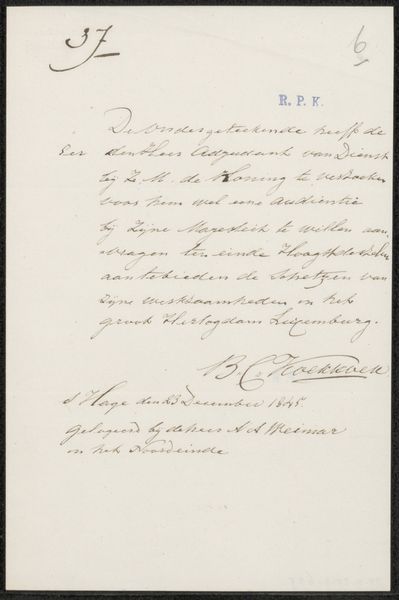 37
6
R. P. K.
De Ondergeteekende heeft de
Eer den Heer Adjudant van Dienst
bij Z. M. de Koning te verzoeken
voor hem wel eene audientie
bij Zijne Majesteit te willen aan-
vragen ten einde Hoogstdezelve
aantebieden de schetzen van
zijne werkzaamheden in het
groot Hertogdom Luxemburg.
B. C. Koekkoek
s Hage den 23 December 1845
gelogeerd bij de heer A A Weimar
in het Noordeinde